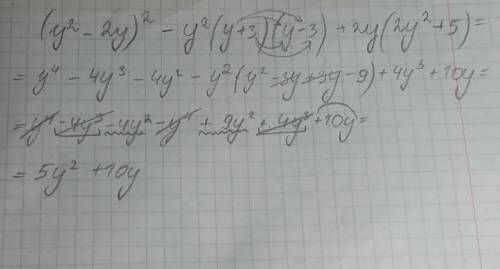 (y² - 2y)² - y²(y+3)(y-3) + 2y(2y²+5) =
= y⁴ - 4y³ - 4y² - y²(y² - 3y + 3y - 9) + 4y³ + 10y =
= y⁴ - 4y³ - 4y² - y⁴ + 9y² + 4y³ + 10y =
= 5y² + 10y